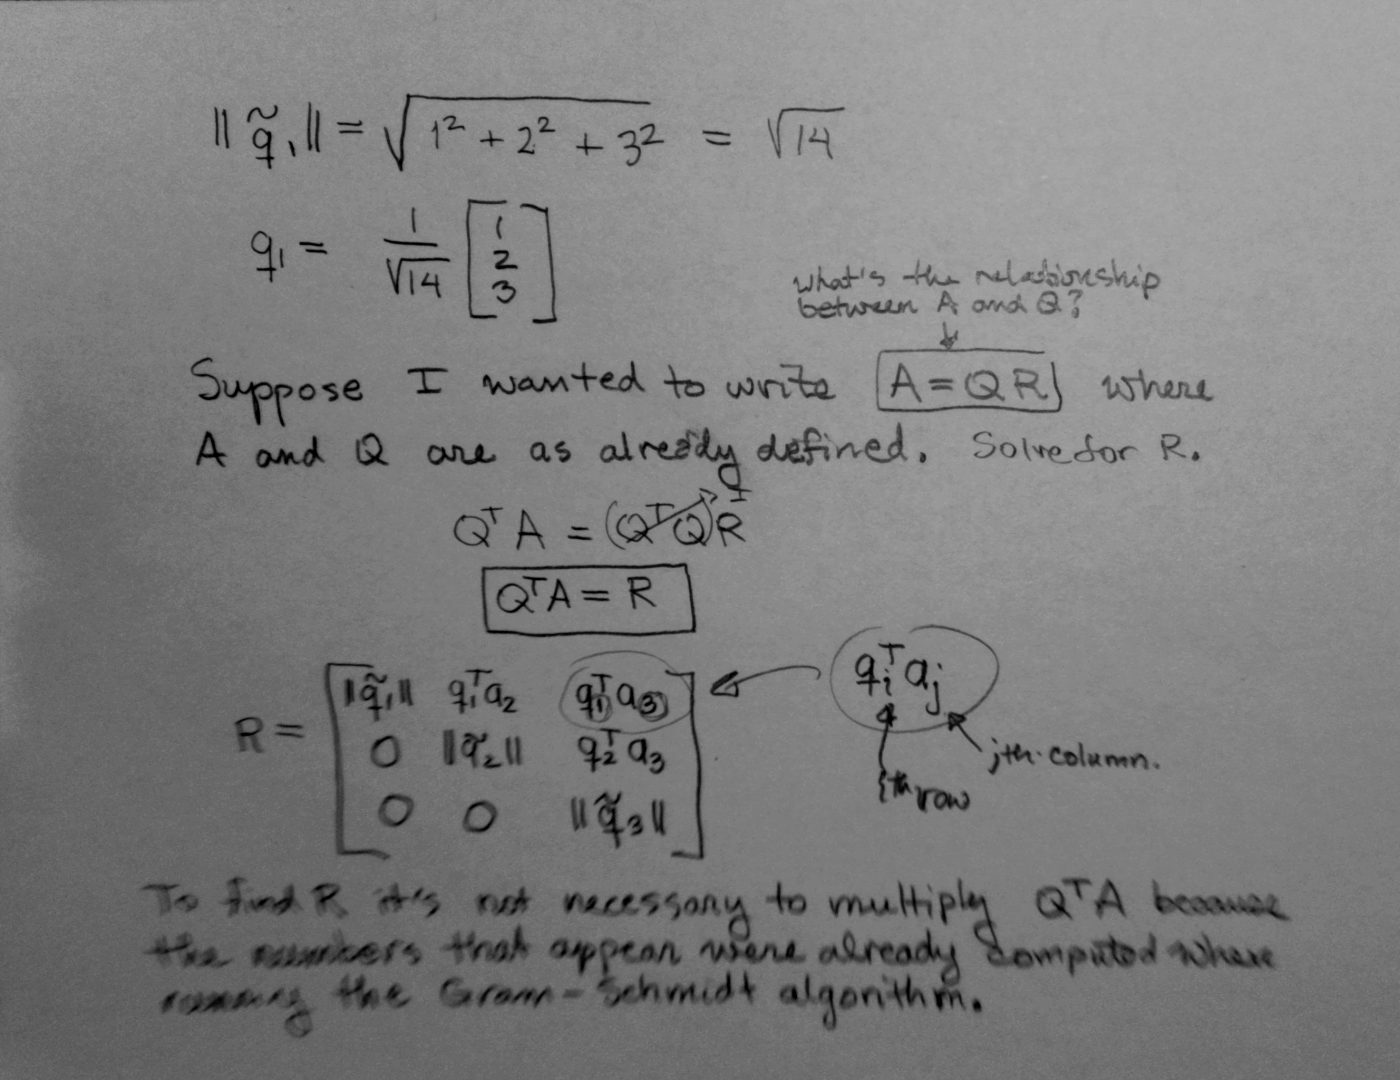 ‖q̃₁‖ = √(1² + 2² + 3²) = √14
q₁ = 1/√14 [1 2 3]
what's the relationship
between A and Q?
Suppose I wanted to write A = QR where
A and Q are as already defined. Solve for R.
QᵀA = (QᵀQ)R I
QᵀA = R
R = [‖q̃₁‖ q₁ᵀa₂ q₁ᵀa₃
0 ‖q̃₂‖ q₂ᵀa₃
0 0 ‖q̃₃‖]
qᵢᵀaⱼ
jth column.
ith row
To find R it's not necessary to multiply QᵀA because
the numbers that appear were already computed where
running the Gram-Schmidt algorithm.